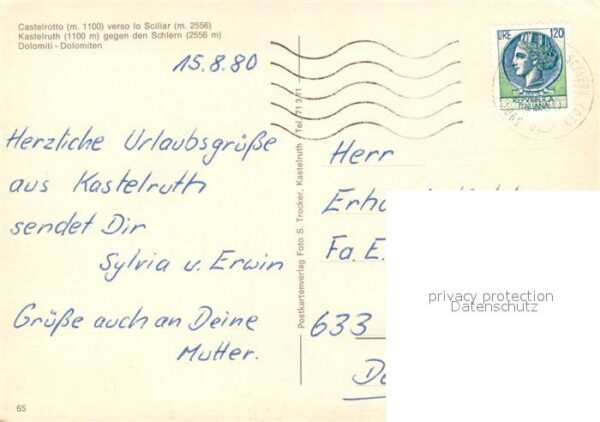 Castelrotto (m. 1100) verso lo Sciliar (m. 2556)
Kastelruth (1100 m) gegen den Schlern (2556 m)
Dolomiti - Dolomiten
15.8.80
Herzliche Urlaubsgrüße
aus Kastelruth
sendet Dir
Sylvia u. Erwin
Grüße auch an Deine
Mutter.
65
Postkartenverlag Foto S. Trocker, Kastelruth - Tel. 71371 -
LIRE 120
REPVBBLICA
ITALIANA
Herr
Fa. E.
633
privacy protection
Datenschutz